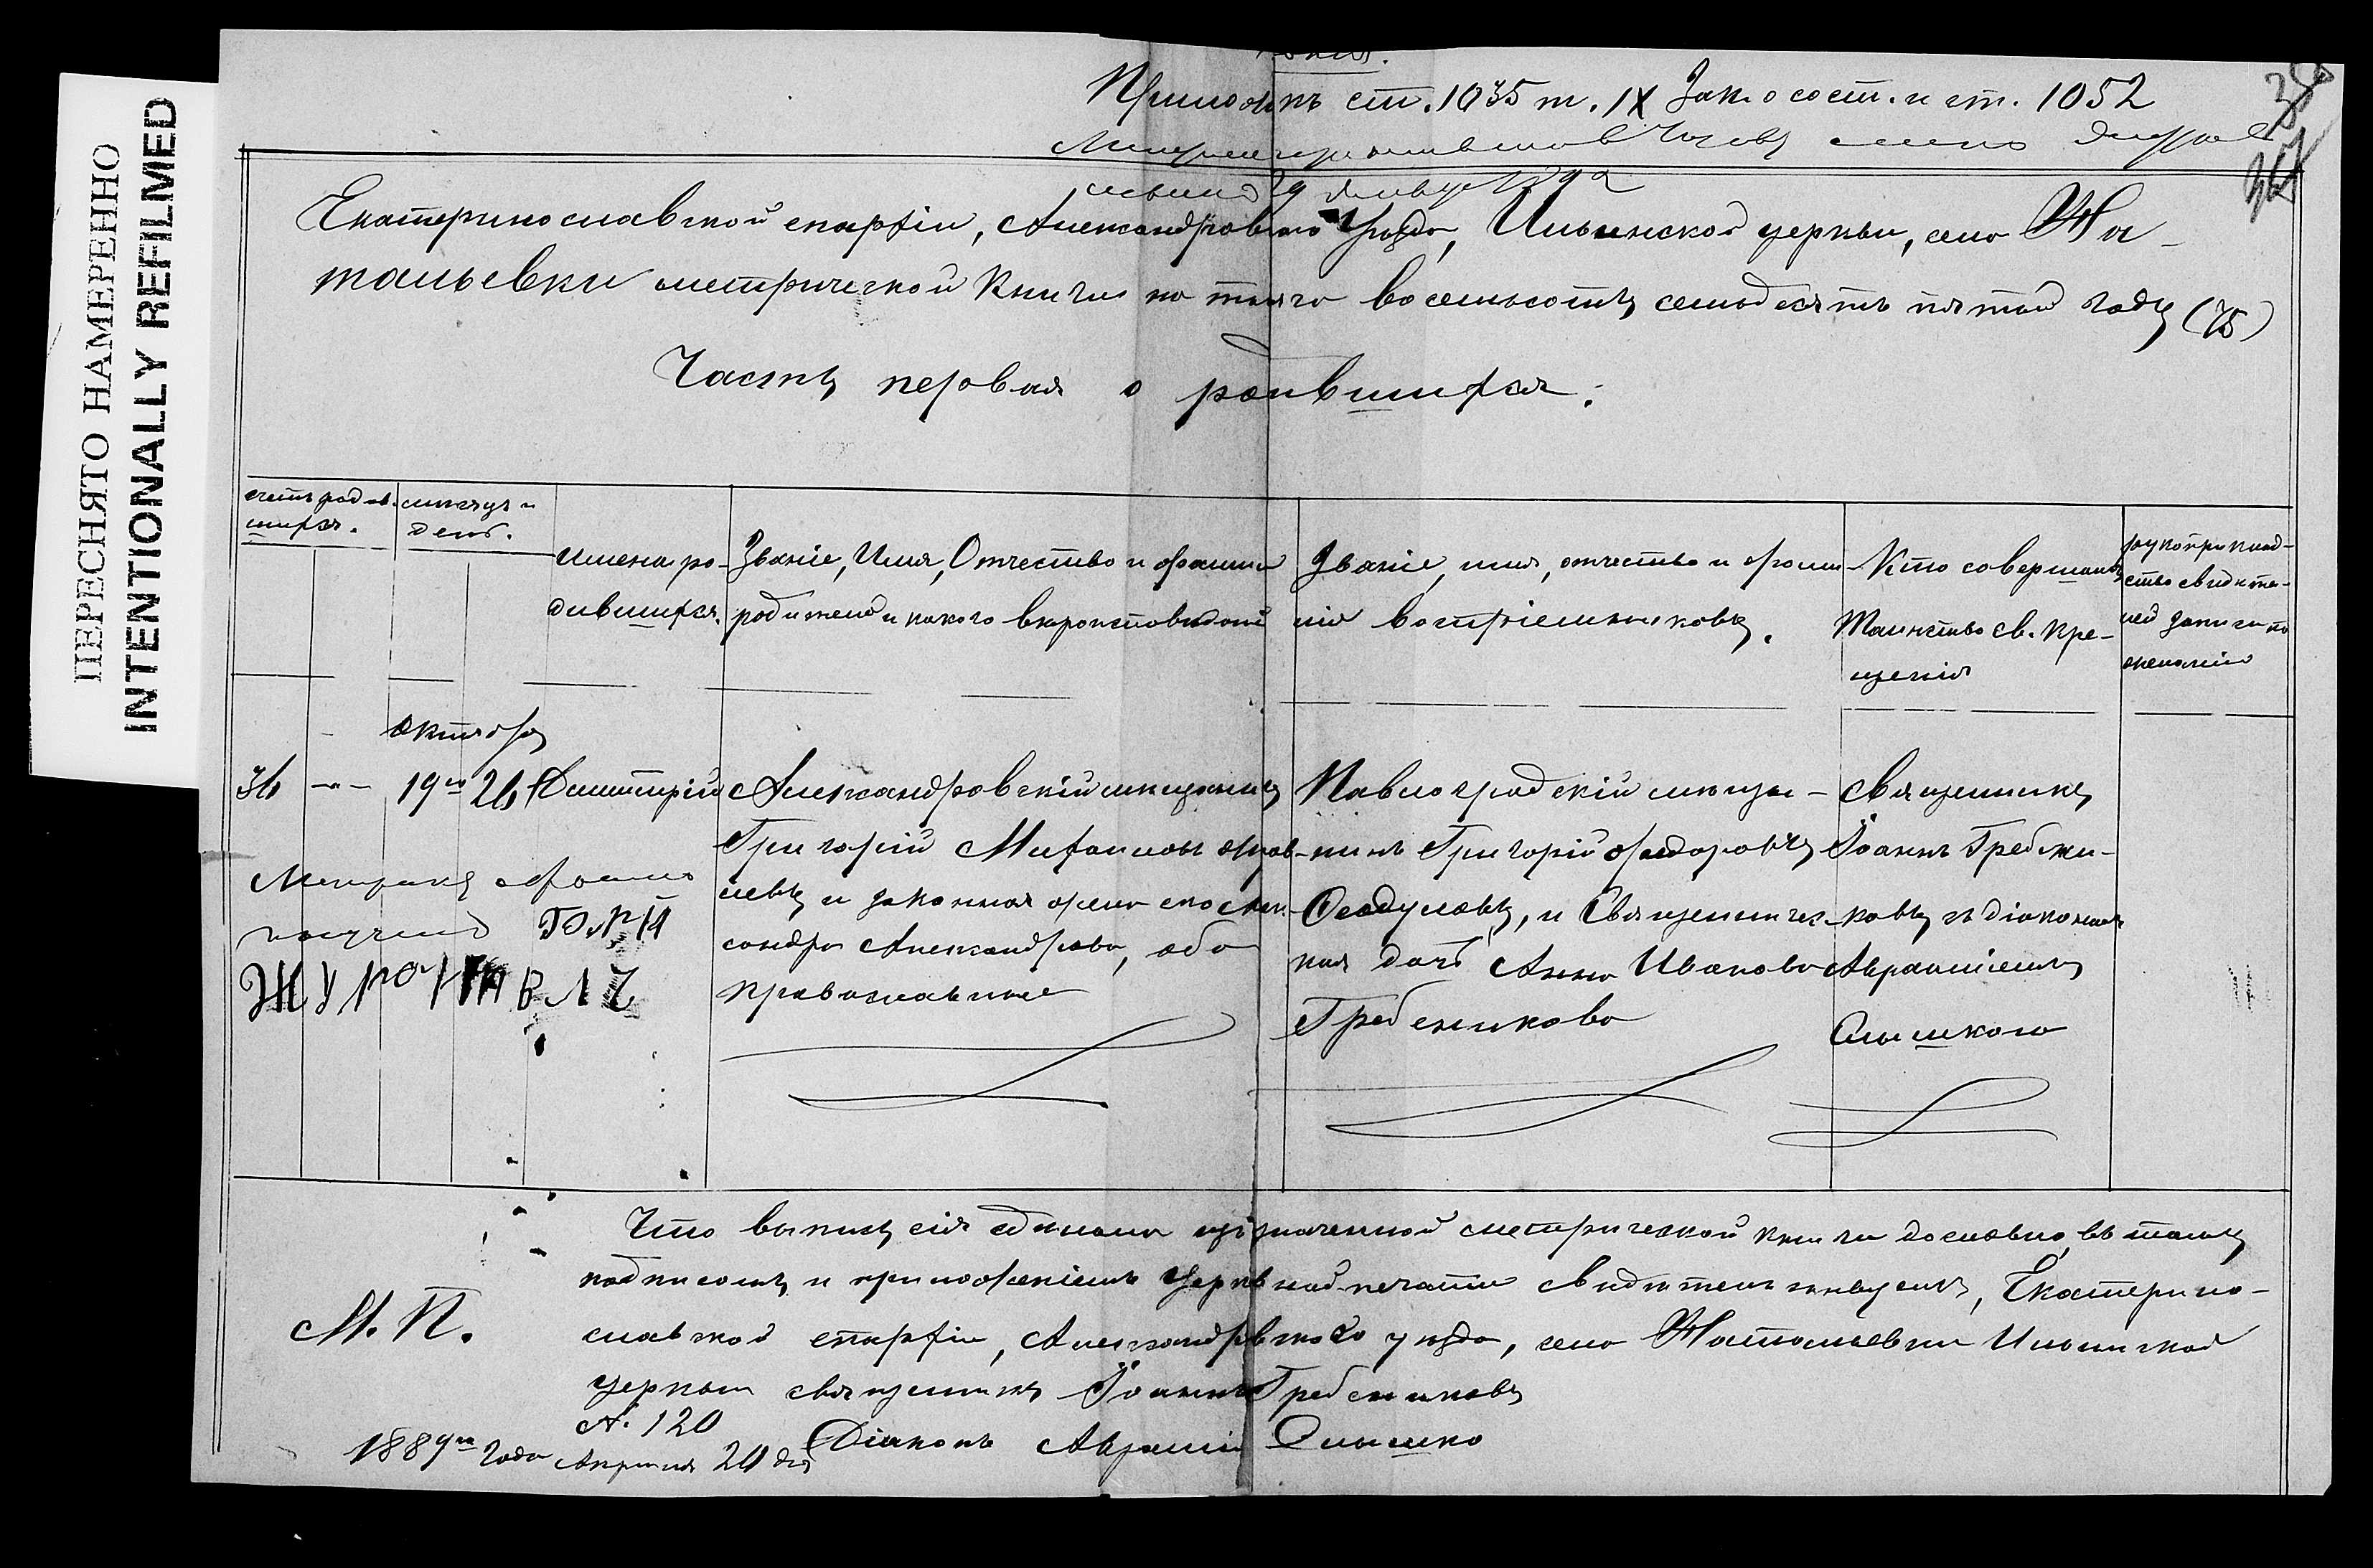 ПЕРЕСНЯТО НАМЕРЕННО
INTENTIONALLY REFILMED
Копія.
Прилож. къ ст. 1035 т. IX Зак. о сост. и ст. 1052
Екатеринославской епархіи, Александровскаго Уѣзда, Ильинской церкви, села На-
тальевки метрической книги на тысяча восемьсотъ семьдесятъ пятый годъ (75)
Часть первая о родившихся.
счетъ родив-
шихся.
мѣсяцъ и
день.
Имена ро-
дившихся.
Званіе, Имя, Отчество и фамилія
родителей и какого вѣроисповѣданія
Званіе, имя, отчество и фами-
лія воспріемниковъ.
Кто совершалъ
Таинство св. Кре-
щенія
рукоприклад-
ство свидѣте-
лей записи по
желанію
Октябрь
36 – " – 19го 26 Дмитрій
Александровскій мѣщанинъ
Григорій Михайловъ
и законная жена его Алек-
сандра Александрова, оба
православные
Павлоградскій мѣща-
нинъ Григорій Федоровъ
Феодуловъ, и Священничес-
кая дочь Анна Иванова
Гребеникова
Священникъ
Іоаннъ Гребени-
ковъ съ діакономъ
Авраміемъ
Слышкою
Метрику
получилъ
Что выпись сія сдѣлана изъ означенной метрической книги дословно, въ томъ
подписомъ и приложеніемъ Церковной печати свидѣтельствуемъ, Екатерино-
славской епархіи, Александровскаго уѣзда, села Натальевки Ильинской
церкви священникъ Іоаннъ Гребениковъ
М. П.
№ 120
Діаконъ Аврамій Слышко
1889го года Апрѣля 20 дня